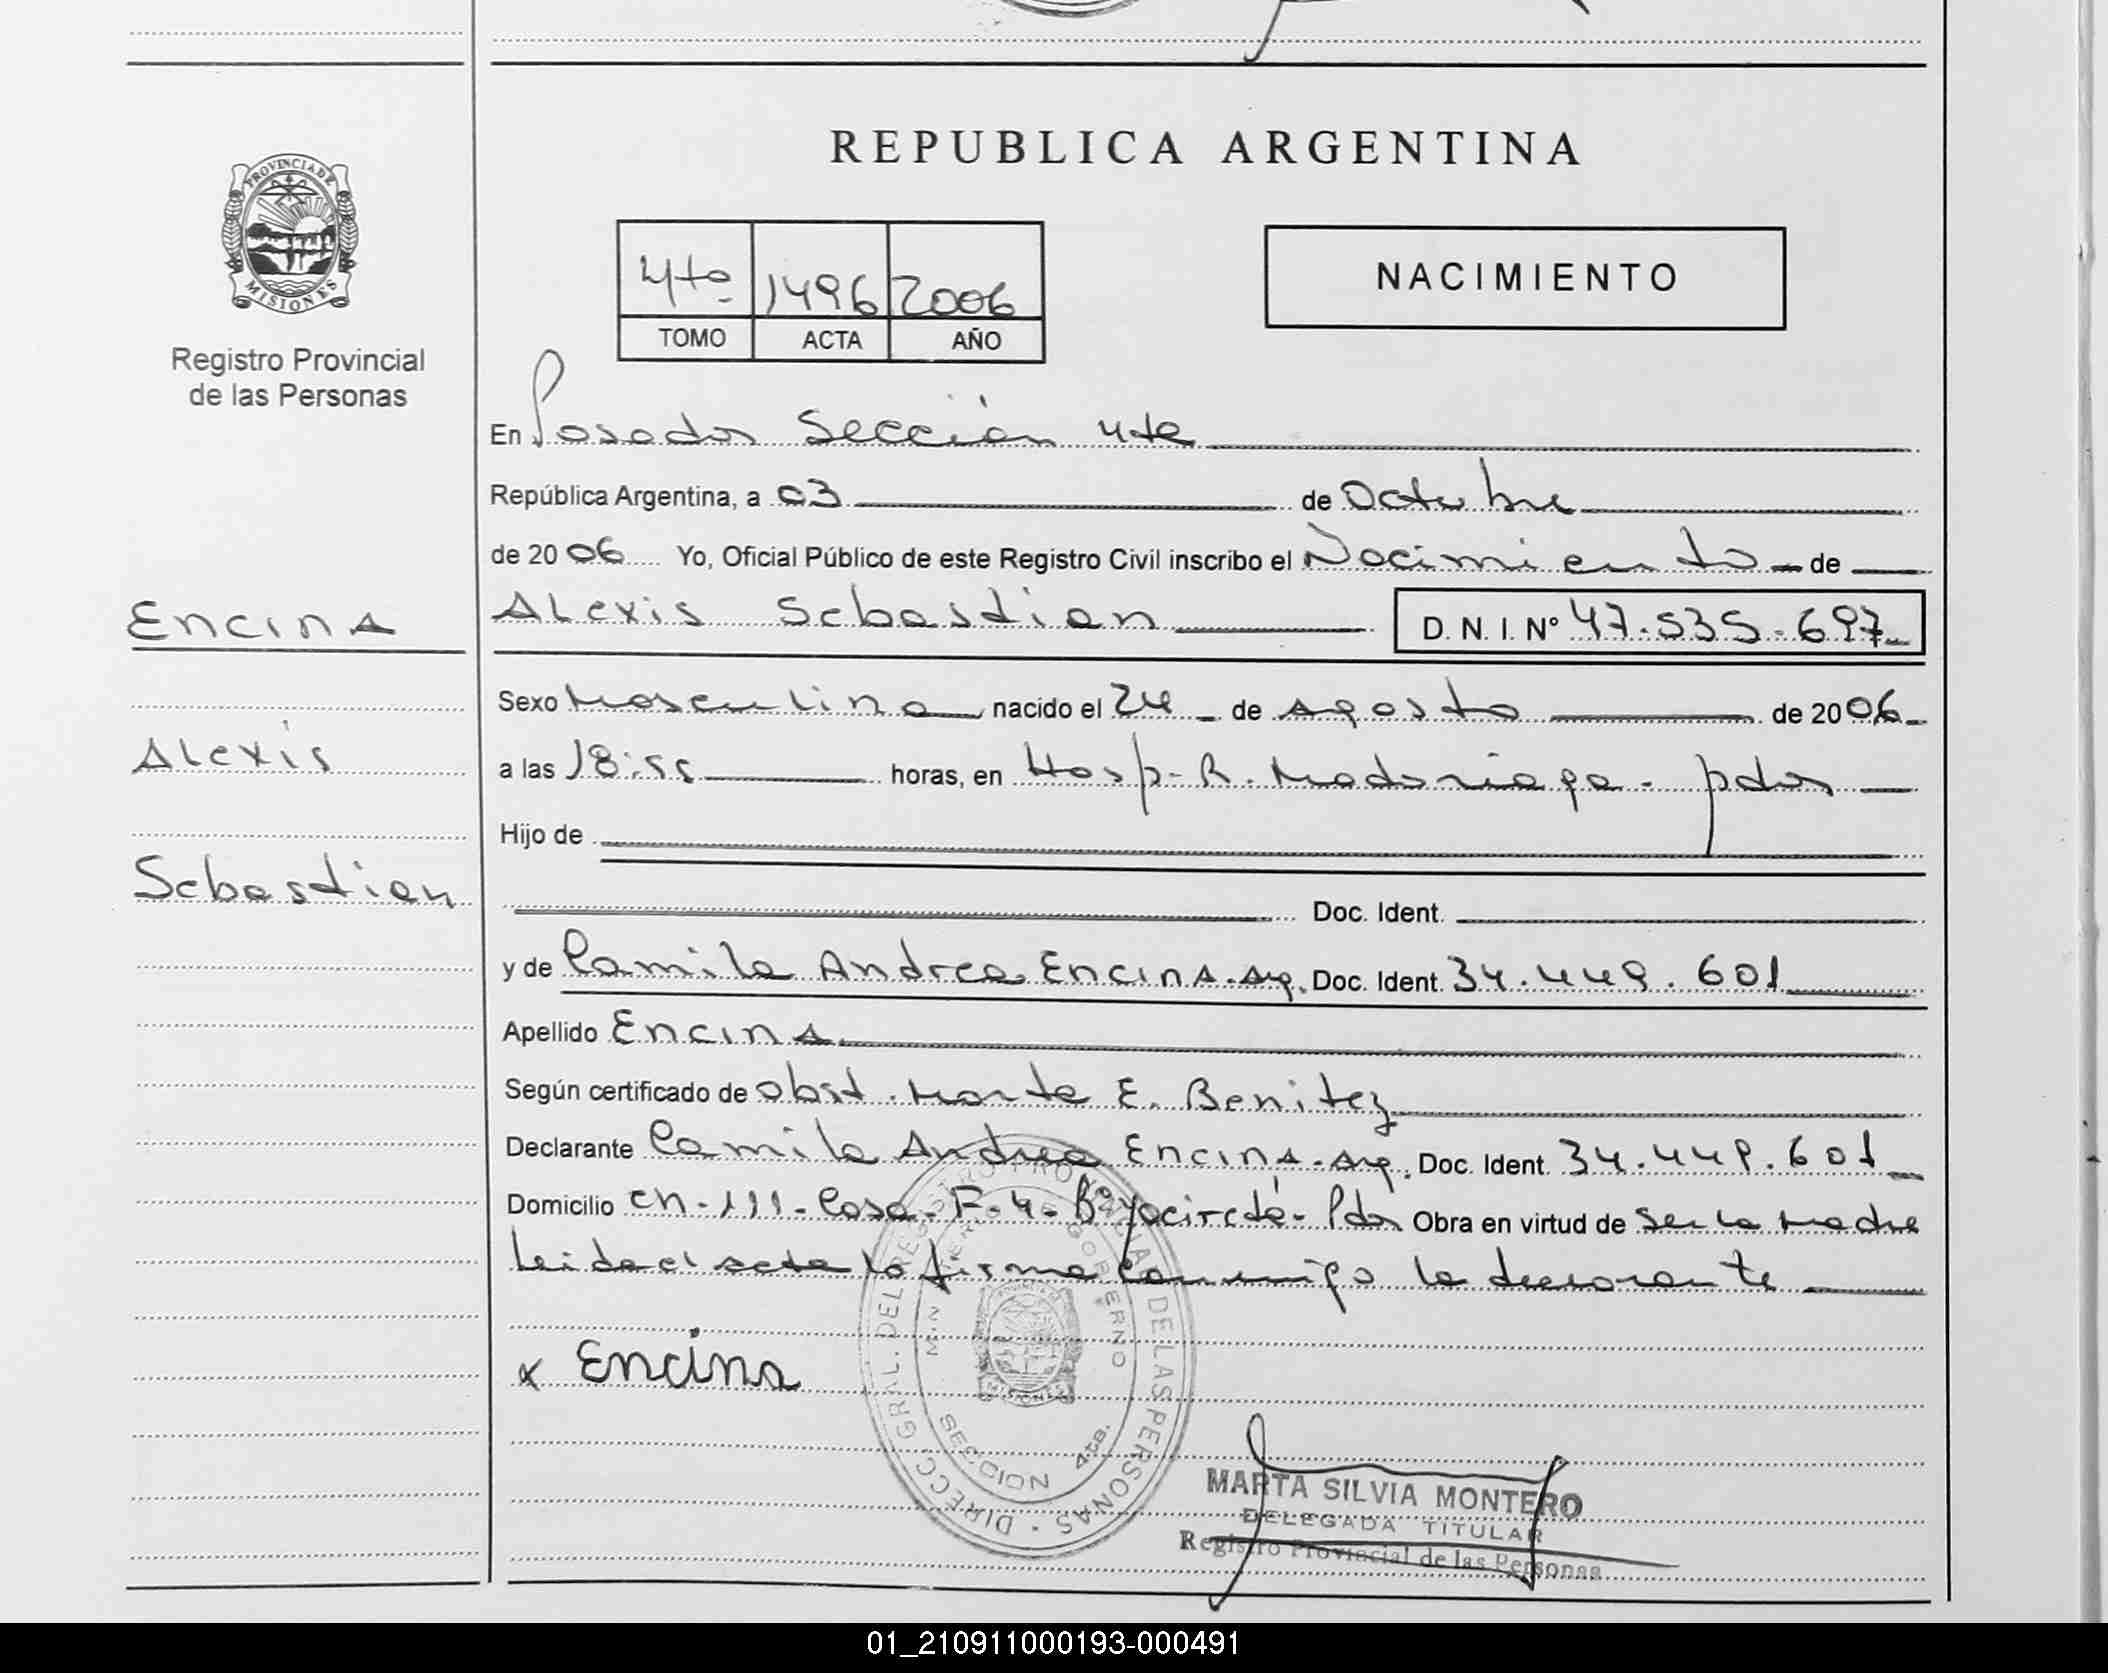 REPUBLICA ARGENTINA
PROVINCIA DE
MISIONES
Registro Provincial
de las Personas
4to 1496 2006
TOMO ACTA AÑO
NACIMIENTO
En Posadas Sección 4ta
República Argentina, a 03 de Octubre
de 2006 Yo, Oficial Público de este Registro Civil inscribo el Nacimiento de
Encina
Alexis Sebastian D. N. I. Nº 47.535.697
Sexo Masculino nacido el 24 de Agosto de 2006
Alexis
a las 18:55 horas, en Hosp. R. Madariaga - pdas
Hijo de
Sebastian
Doc. Ident.
y de Camila Andrea Encina. Arg. Doc. Ident. 34.449.601
Apellido Encina
Según certificado de Obst. E. Benitez
Declarante Camila Andrea Encina. Arg. Doc. Ident. 34.449.601
Domicilio Ch-111-Casa-F-4-Bº Yacireta- Pdas Obra en virtud de ser la Madre
leida el acta la firma conmigo la declarante
x Encina
DIRECC. GRAL. DEL REGISTRO PROVINCIAL DE LAS PERSONAS
MINISTERIO DE GOBIERNO
MISIONES
SECCION 4ta.
MARTA SILVIA MONTERO
DELEGADA TITULAR
Registro Provincial de las Personas
01_210911000193-000491